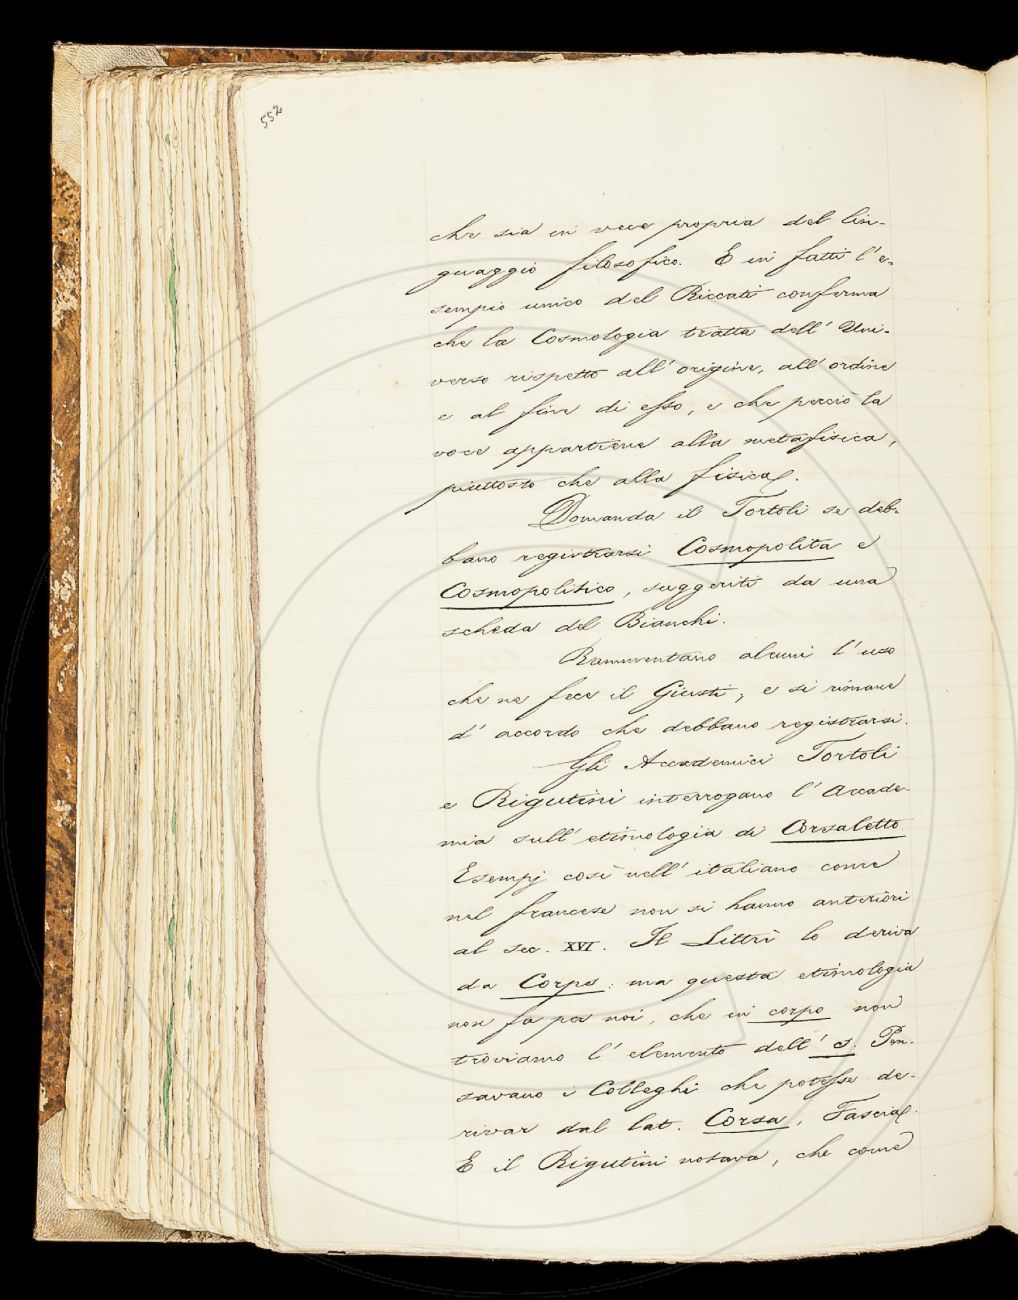 552
che sia in vece propria del lin-
guaggio filosofico. E in fatti l'e-
sempio unico del Riccati conferma
che la Cosmologia tratta dell'Uni-
verso rispetto all'origine, all'ordine
e al fine di esso, e che perciò la
voce appartiene alla metafisica,
piuttosto che alla fisica.
Domanda il Tortoli se deb-
bano registrarsi Cosmopolita e
Cosmopolitico, suggeriti da una
scheda del Bianchi.
Rammentano alcuni l'uso
che ne fece il Giusti; e si rimane
d'accordo che debbano registrarsi.
Gli Accademici Tortoli
e Rigutini interrogano l'Accade-
mia sull'etimologia di Corsaletto
Esempj così nell'italiano come
nel francese non si hanno anteriori
al sec. XVI. Il Littrè lo deriva
da Corps: ma questa etimologia
non fa per noi, che in corpo non
troviamo l'elemento dell's. Pen-
savano i Colleghi che potesse de-
rivar dal lat. Corsa, Fascia.
E il Rigutini notava, che come